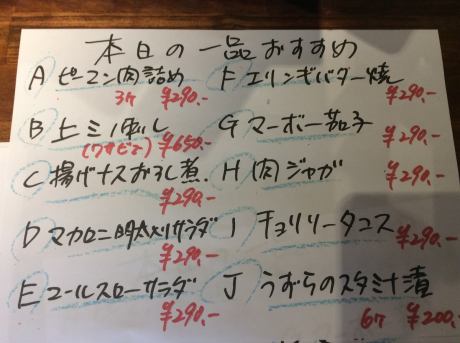 本日の一品おすすめ
A ピーマン肉詰め
3ケ ¥290.-
B 上ミノ刺し
(ワサビ) ¥650.-
C 揚げナスおろし煮.
¥290.-
D マカロニ明太入りサラダ
¥290.-
E コールスローサラダ
¥290.-
F エリンギバター焼
¥290.-
G マーボー茄子
¥290.-
H 肉ジャガ
¥290.-
I チョリソータコス
¥290.-
J うずらのスタミナ漬
6ケ ¥200.-